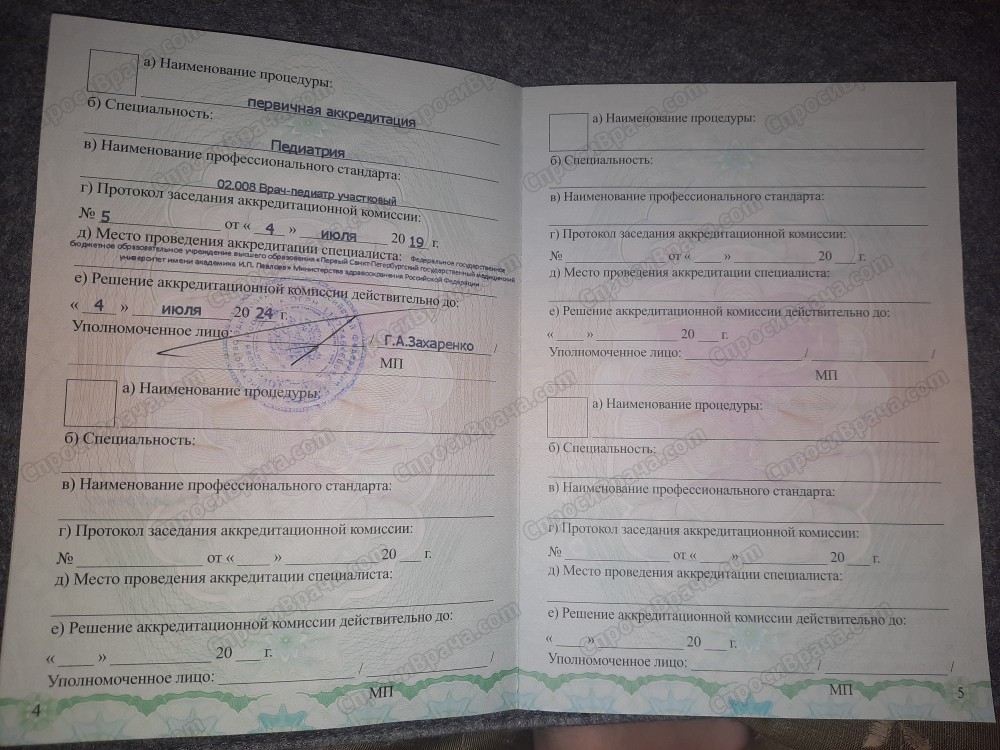 а) Наименование процедуры:
первичная аккредитация
б) Специальность:
Педиатрия
в) Наименование профессионального стандарта:
02.008 Врач-педиатр участковый
г) Протокол заседания аккредитационной комиссии:
№ 5 от « 4 » июля 20 19 г.
д) Место проведения аккредитации специалиста: Федеральное государственное
бюджетное образовательное учреждение высшего образования «Первый Санкт-Петербургский государственный медицинский
университет имени академика И.П. Павлова» Министерства здравоохранения Российской Федерации
е) Решение аккредитационной комиссии действительно до:
« 4 » июля 20 24 г.
Уполномоченное лицо: / Г.А.Захаренко /
МП
а) Наименование процедуры:
б) Специальность:
в) Наименование профессионального стандарта:
г) Протокол заседания аккредитационной комиссии:
№ от « » 20 г.
д) Место проведения аккредитации специалиста:
е) Решение аккредитационной комиссии действительно до:
« » 20 г.
Уполномоченное лицо: / /
МП
4
а) Наименование процедуры:
б) Специальность:
в) Наименование профессионального стандарта:
г) Протокол заседания аккредитационной комиссии:
№ от « » 20 г.
д) Место проведения аккредитации специалиста:
е) Решение аккредитационной комиссии действительно до:
« » 20 г.
Уполномоченное лицо: / /
МП
а) Наименование процедуры:
б) Специальность:
в) Наименование профессионального стандарта:
г) Протокол заседания аккредитационной комиссии:
№ от « » 20 г.
д) Место проведения аккредитации специалиста:
е) Решение аккредитационной комиссии действительно до:
« » 20 г.
Уполномоченное лицо: / /
МП
5
СпросиВрача.com